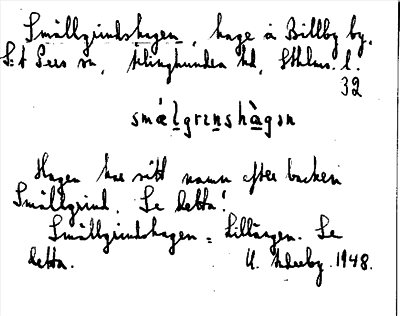 Smällgrindshagen, hage å Billby by,
S:t Pers sn, Åkinghunden hd, Sthlms. l.
32
smæ̀lgrɪnshàgən
Hagen har sitt namn efter backen
Smällgrind. Se detta!
Smällgrindshagen = Lillängen. Se
detta. U. 1948.